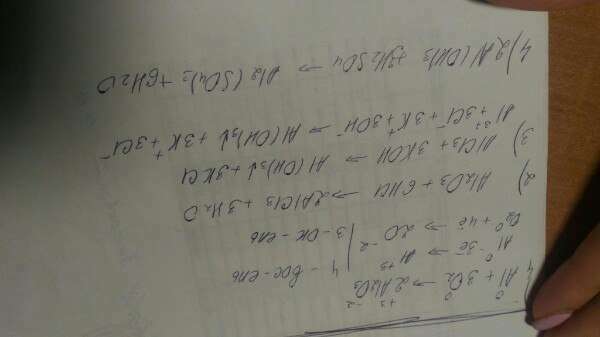 0 0 +3 -2
1) Al + 3O₂ → 2Al₂O₃
Al⁰ - 3ē → Al⁺³ | 4 - вос-ель
O₂⁰ + 4ē → 2O⁻² | 3 - ок-ель
2) Al₂O₃ + 6HCl → 2AlCl₃ + 3H₂O
3) AlCl₃ + 3KOH → Al(OH)₃↓ + 3KCl
Al³⁺ + 3Cl⁻ + 3K⁺ + 3OH⁻ → Al(OH)₃↓ + 3K⁺ + 3Cl⁻
4) 2Al(OH)₃ + 3H₂SO₄ → Al₂(SO₄)₃ + 6H₂O